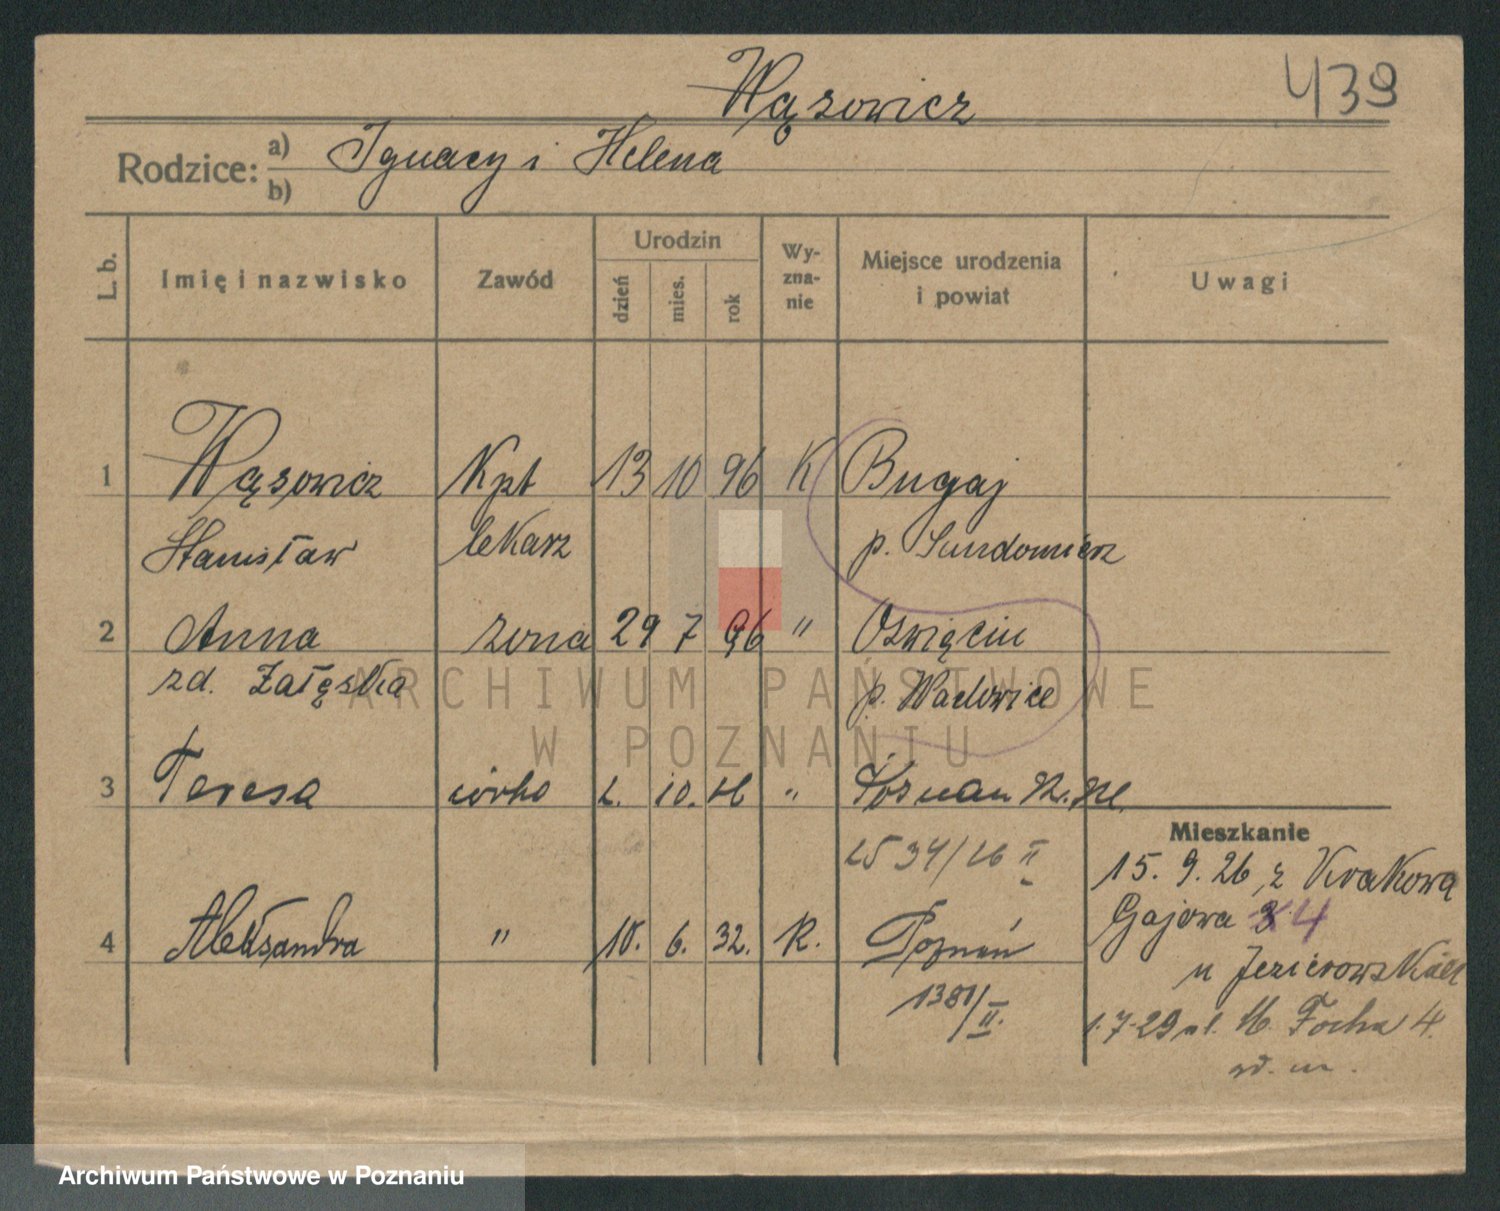 Wąsowicz 439
Rodzice: a) Ignacy i Helena
b)
L. b. Imię i nazwisko Zawód Urodzin dzień mies. rok Wy-zna-nie Miejsce urodzenia i powiat Uwagi
1 Wąsowicz Kpt 13 10 96 K Bugaj
Stanisław lekarz p. Sandomierz
2 Anna żona 29 7 96 " Oświęcim
zd. Załęska p. Wadowice
3 Teresa córka 2. 10. 26 " Poznań
2534/26 II
Mieszkanie
15. 9. 26, z Krakowa
Gajowa 4
4 Aleksandra " 10. 6. 32. R. Poznań
u Jezierowskiej
1381/II.
1.7.29 ul. M. Focha 4.
ARCHIWUM PAŃSTWOWE
W POZNANIU
Archiwum Państwowe w Poznaniu